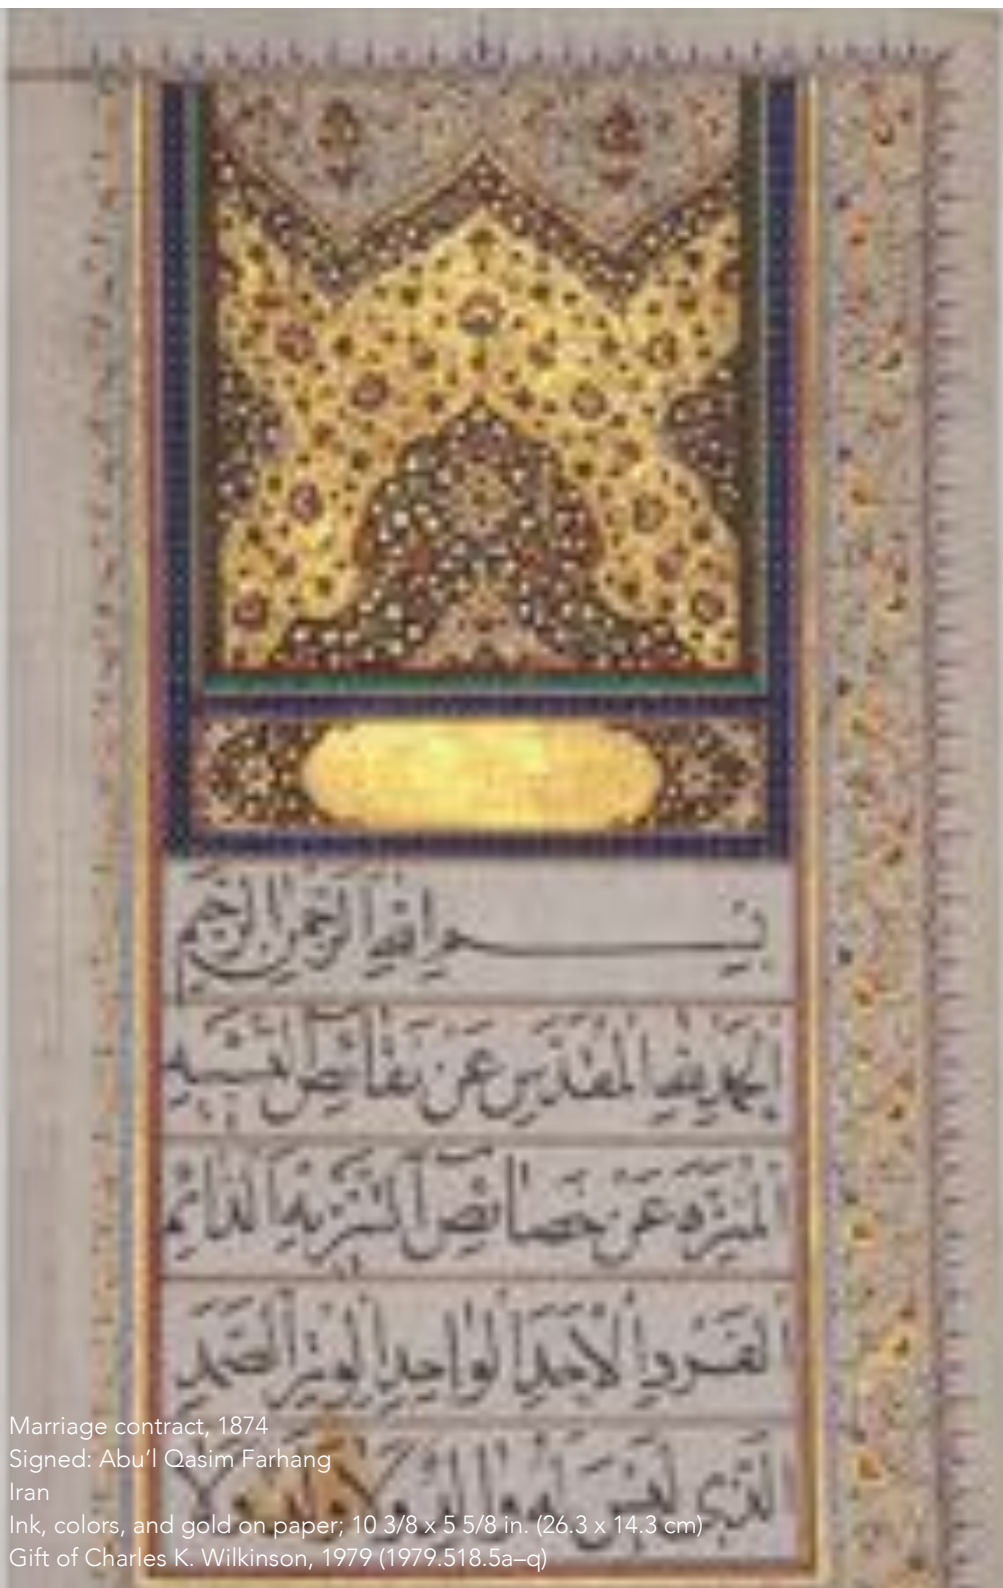 بِسْمِ اللهِ الرَّحْمٰنِ الرَّحِيمِ
المُقَدَّسِ عَنْ نَقَائِصِ
المُنَزَّهِ عَنْ خَصَائِصِ التَّنْزِيهِ الدَّائِمِ
الفَرْدِ الأَحَدِ الوَاحِدِ الوِتْرِ الصَّمَدِ
الَّذِي لَيْسَ لَهُ وَلَا
Marriage contract, 1874
Signed: Abu’l Qasim Farhang
Iran
Ink, colors, and gold on paper; 10 3/8 x 5 5/8 in. (26.3 x 14.3 cm)
Gift of Charles K. Wilkinson, 1979 (1979.518.5a–q)